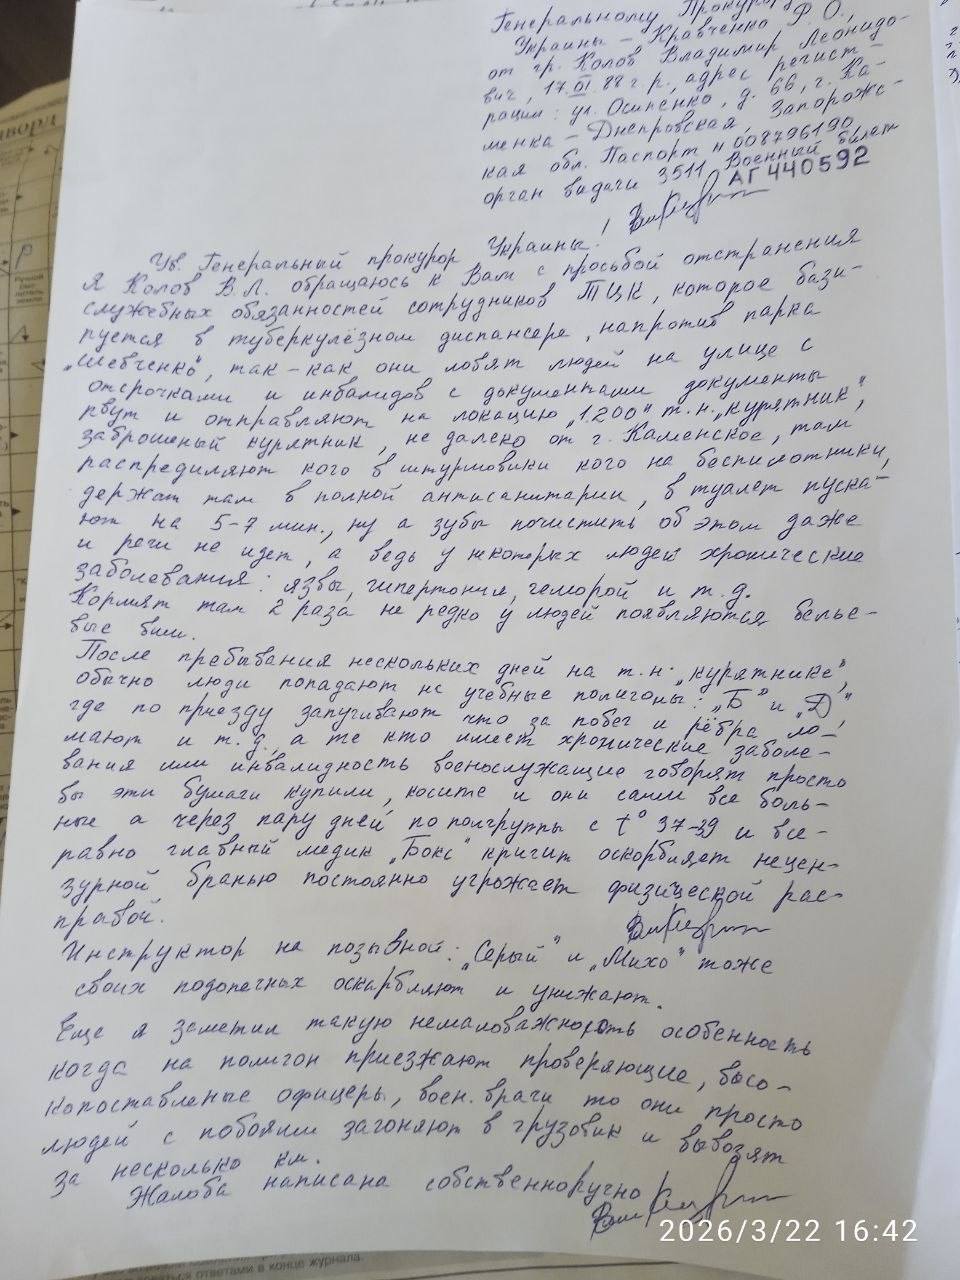 Генеральному Прокурору
Украины – Кравченко Р. О.,
от гр. Колов Владимир Леонидо-
вич, 17. 88 г р., адрес регист-
рации: ул. Осипенко, д. 66, г. Ка-
менка – Днепровская, Запорожс-
кая обл. Паспорт н 008796190,
орган видачи 3511, Военный билет
АГ 440592
Ув. Генеральный прокурор Украины!
Я Колов В.Л. обращаюсь к Вам с просьбой отстранения
служебных обязанностей сотрудников ТЦК, которое бази-
руется в туберкулёзном диспансере, напротив парка
„Шевченко", так-как они ловят людей на улице с
отсрочками и инвалидов с документами документы
рвут и отправляют на локацию „1200" т.н. „курятник",
заброшеный курятник, не далеко от г. Каменское, там
распредиляют кого в штурмовики кого на беспилотники,
держат там в полной антисанитарии, в туалет пуска-
ют на 5-7 мин., ну а зубы почистить об этом даже
и речи не идет, а ведь у некоторых людей хронические
заболевания: язвы, гипертония, геморой и т.д.
Кормят там 2 раза не редко у людей появляются белье-
вые вши.
После пребывания нескольких дней на т.н. „курятнике",
обычно люди попадают на учебные полигоны: „Б" и „Д",
где по приезду запугивают что за побег и рёбра ло-
мают и т.д., а те кто имеет хронические заболе-
вания или инвалидность военослужащие говорят просто
вы эти бумаги купили, косите и они сами все боль-
ные а через пару дней по полгруппы с t° 37-39 и все-
равно главный медик „Бокс" кричит оскорбляет нецен-
зурной бранью постоянно угрожает физической рас-
правой.
Инструктор на позывной: „Серый" и „Михо" тоже
своих подопечных оскорбляют и унижают.
Еще я заметил такую немаловажнорть особенность
когда на полигон приезжают проверяющие, высо-
копоставленые офицеры, воен. врачи то они просто
людей с побоями загоняют в грузовик и вывозят
за несколько км.
Жалоба написана собственноручно
2026/3/22 16:42
ответами в конце журнала.